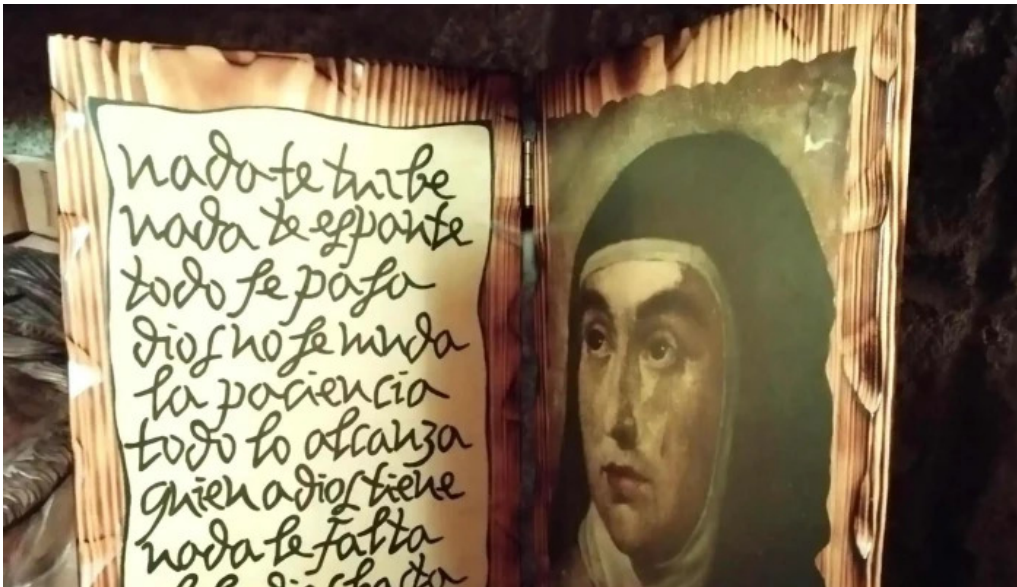 nada te turbe
nada te espante
todo se pasa
dios no se muda
la paciencia
todo lo alcanza
quien a dios tiene
nada le falta